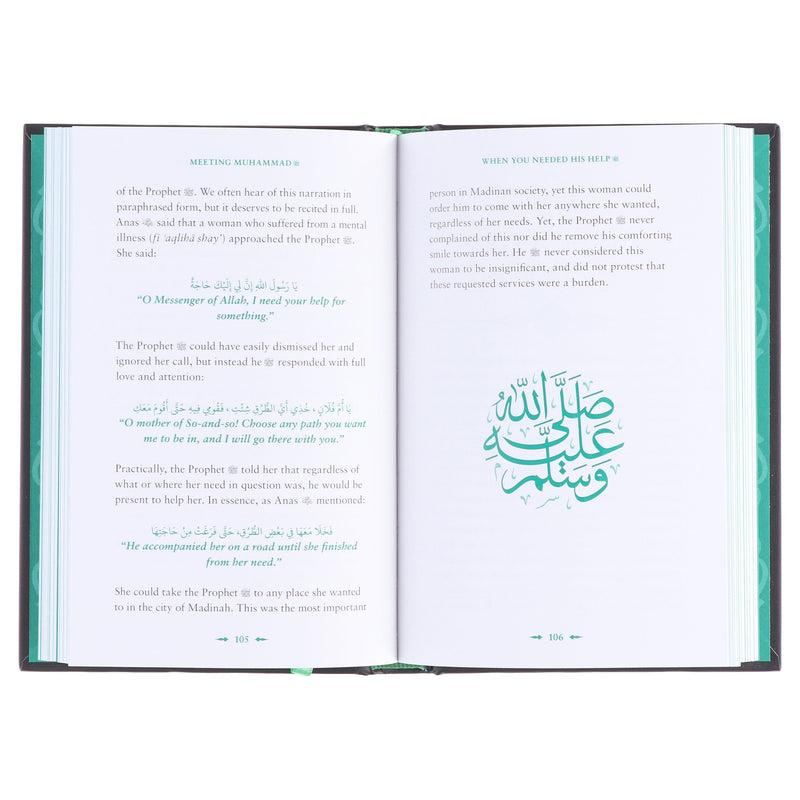 MEETING MUHAMMAD ﷺ
of the Prophet ﷺ. We often hear of this narration in
paraphrased form, but it deserves to be recited in full.
Anas said that a woman who suffered from a mental
illness (fī ‘aqlihā shay’) approached the Prophet ﷺ.
She said:
يَا رَسُولَ اللَّهِ إِنَّ لِي إِلَيْكَ حَاجَةً
“O Messenger of Allah, I need your help for
something.”
The Prophet ﷺ could have easily dismissed her and
ignored her call, but instead he ﷺ responded with full
love and attention:
يَا أُمَّ فُلَانٍ، خُذِي أَيَّ الطُّرُقِ شِئْتِ، فَقُومِي فِيهِ حَتَّى أَقُومَ مَعَكِ
“O mother of So-and-so! Choose any path you want
me to be in, and I will go there with you.”
Practically, the Prophet ﷺ told her that regardless of
what or where her need in question was, he would be
present to help her. In essence, as Anas mentioned:
فَخَلَا مَعَهَا فِي بَعْضِ الطُّرُقِ، حَتَّى فَرَغَتْ مِنْ حَاجَتِهَا
“He accompanied her on a road until she finished
from her need.”
She could take the Prophet ﷺ to any place she wanted
to in the city of Madinah. This was the most important
105
WHEN YOU NEEDED HIS HELP ﷺ
person in Madinan society, yet this woman could
order him to come with her anywhere she wanted,
regardless of her needs. Yet, the Prophet ﷺ never
complained of this nor did he remove his comforting
smile towards her. He ﷺ never considered this
woman to be insignificant, and did not protest that
these requested services were a burden.
صَلَّى اللَّه
عَلَيْهِ
وَسَلَّم
106